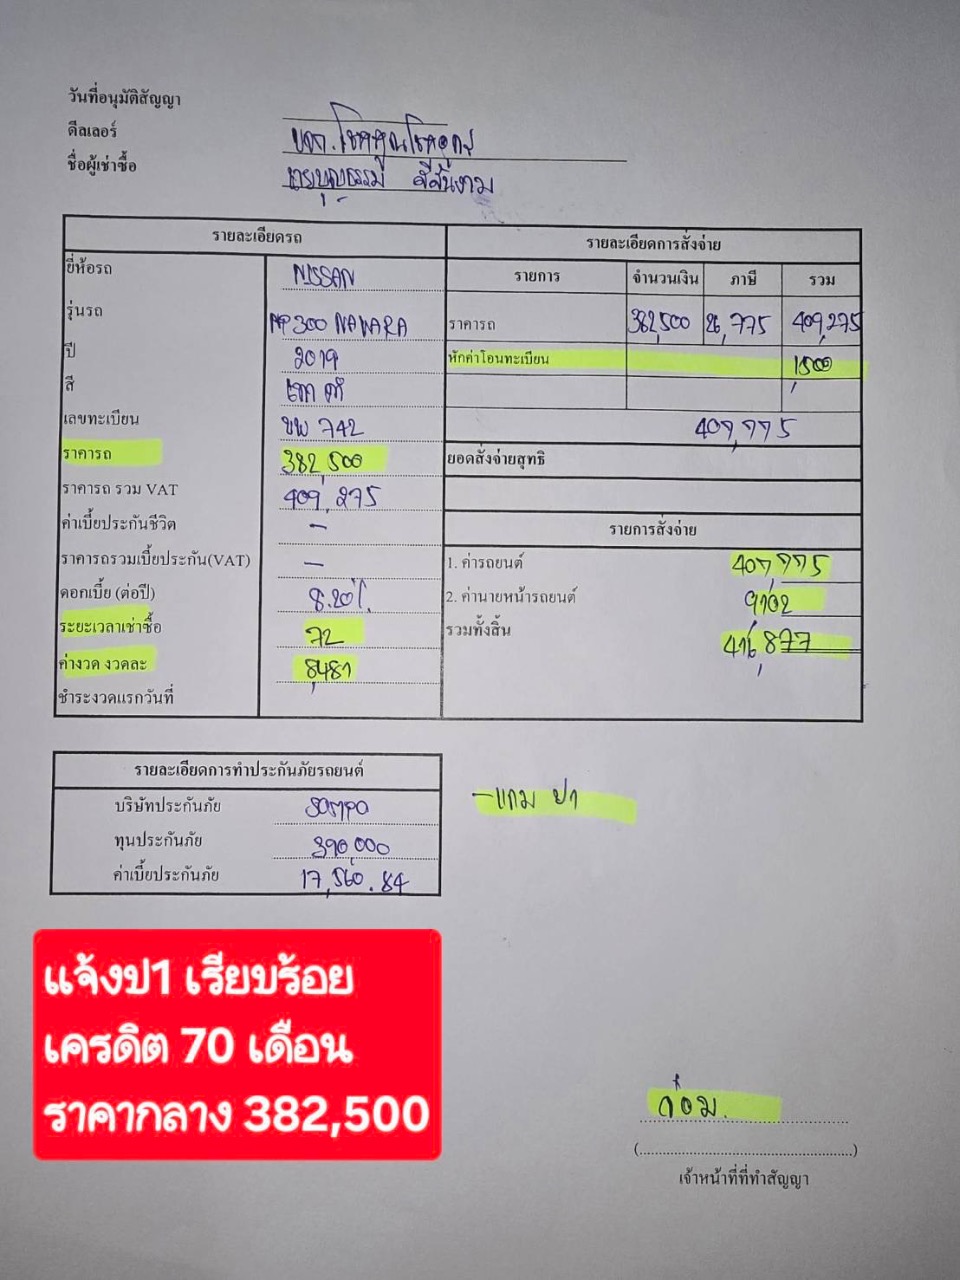 วันที่อนุมัติสัญญา
ดีลเลอร์ บจก.โชคหนูนโชคอุดร
ชื่อผู้เช่าซื้อ นายบุญธรรม สีสันงาม
รายละเอียดรถ
ยี่ห้อรถ NISSAN
รุ่นรถ NP300 NAVARA
ปี 2019
สี เทาดำ
เลขทะเบียน ขพ 742
ราคารถ 382,500
ราคารถ รวม VAT 409,275
ค่าเบี้ยประกันชีวิต -
ราคารถรวมเบี้ยประกัน(VAT) -
ดอกเบี้ย (ต่อปี) 8.20%
ระยะเวลาเช่าซื้อ 72
ค่างวด งวดละ 8,481
ชำระงวดแรกวันที่
รายละเอียดการสั่งจ่าย
รายการ จำนวนเงิน ภาษี รวม
ราคารถ 382,500 26,775 409,275
หักค่าโอนทะเบียน 1,500
407,775
ยอดสั่งจ่ายสุทธิ
รายการสั่งจ่าย
1. ค่ารถยนต์ 407,775
2. ค่านายหน้ารถยนต์ 9,102
รวมทั้งสิ้น 416,877
รายละเอียดการทำประกันภัยรถยนต์
บริษัทประกันภัย SOMPO
ทุนประกันภัย 390,000
ค่าเบี้ยประกันภัย 17,560.84
-แถม ป1
แจ้งป1 เรียบร้อย
เครดิต 70 เดือน
ราคากลาง 382,500
ก๋อม.
(......................................................)
เจ้าหน้าที่ที่ทำสัญญา